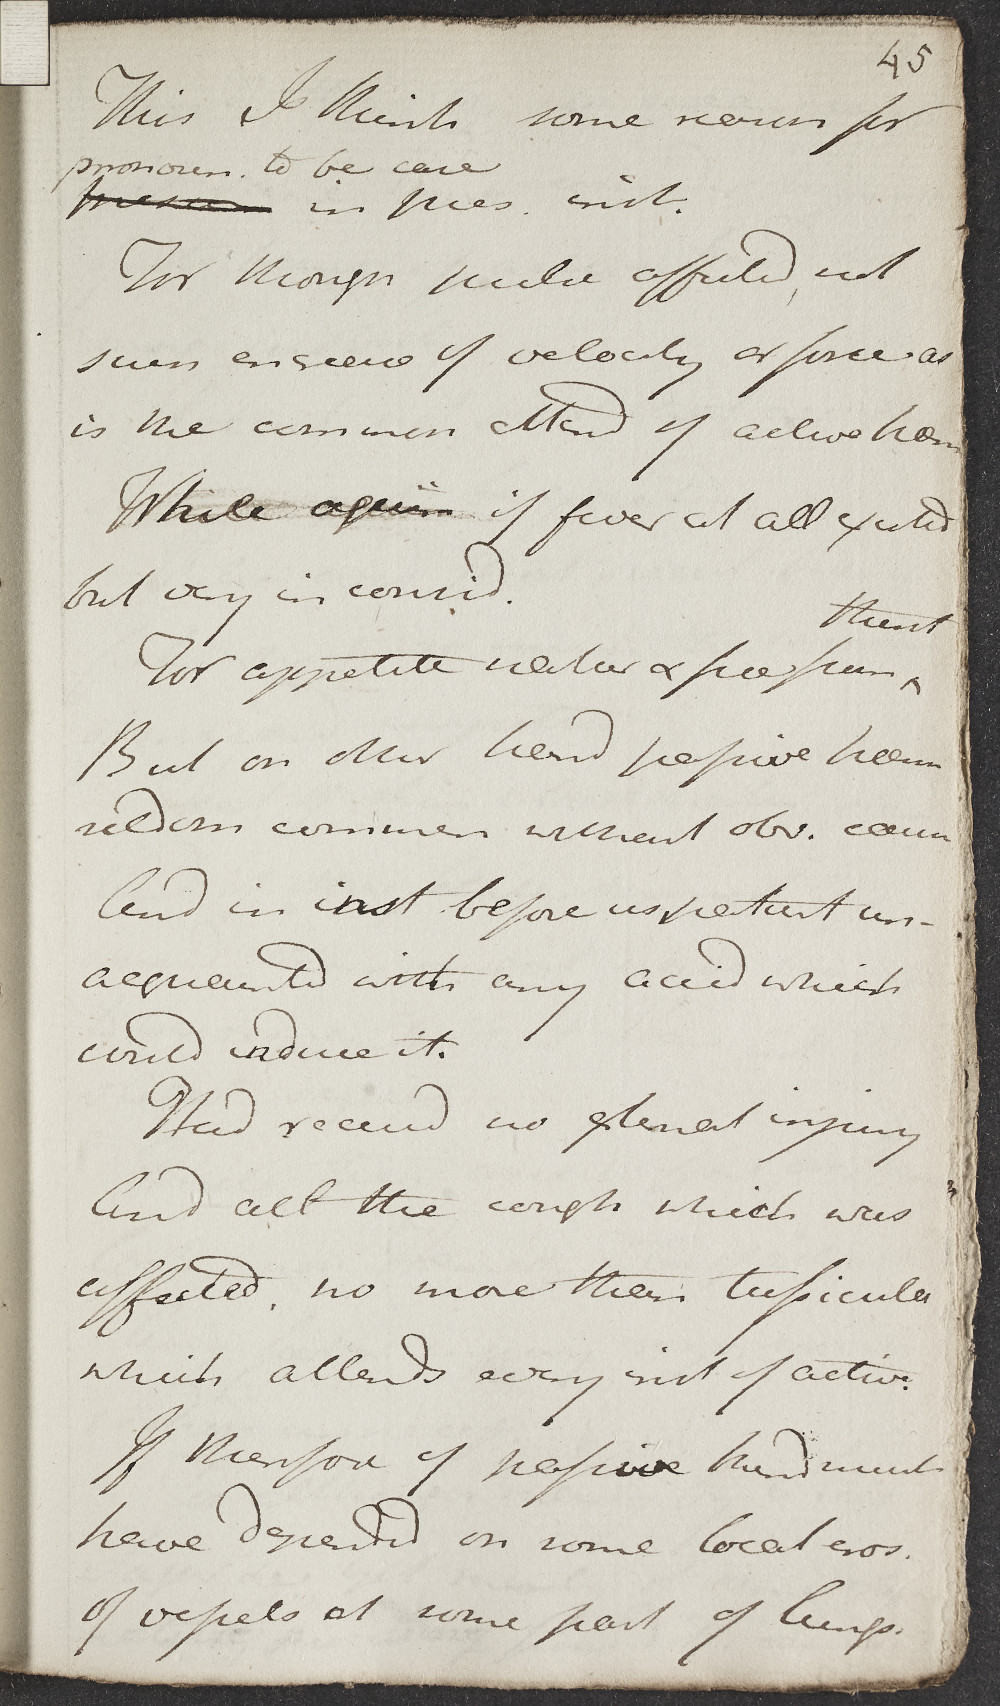 45
This I think some reason for
pronoun. to be case
in pres. inst.
For though pulse affected, not
such encrease of velocity or force as
is the common attend of active haem
While again if fever at all excited
but very inconsid.
thirst
For appetite natur &
But on other hand passive haem
seldom common without obv. caus
And in inst before us, patient un-
acquainted with any accid which
could induce it.
Had receivd no external injury
And all the cough which was
affected, no more than tussicula
which attends every inst of activ.
If therefore of passive kind must
have depended on some local eros.
of vessels at some part of lungs.